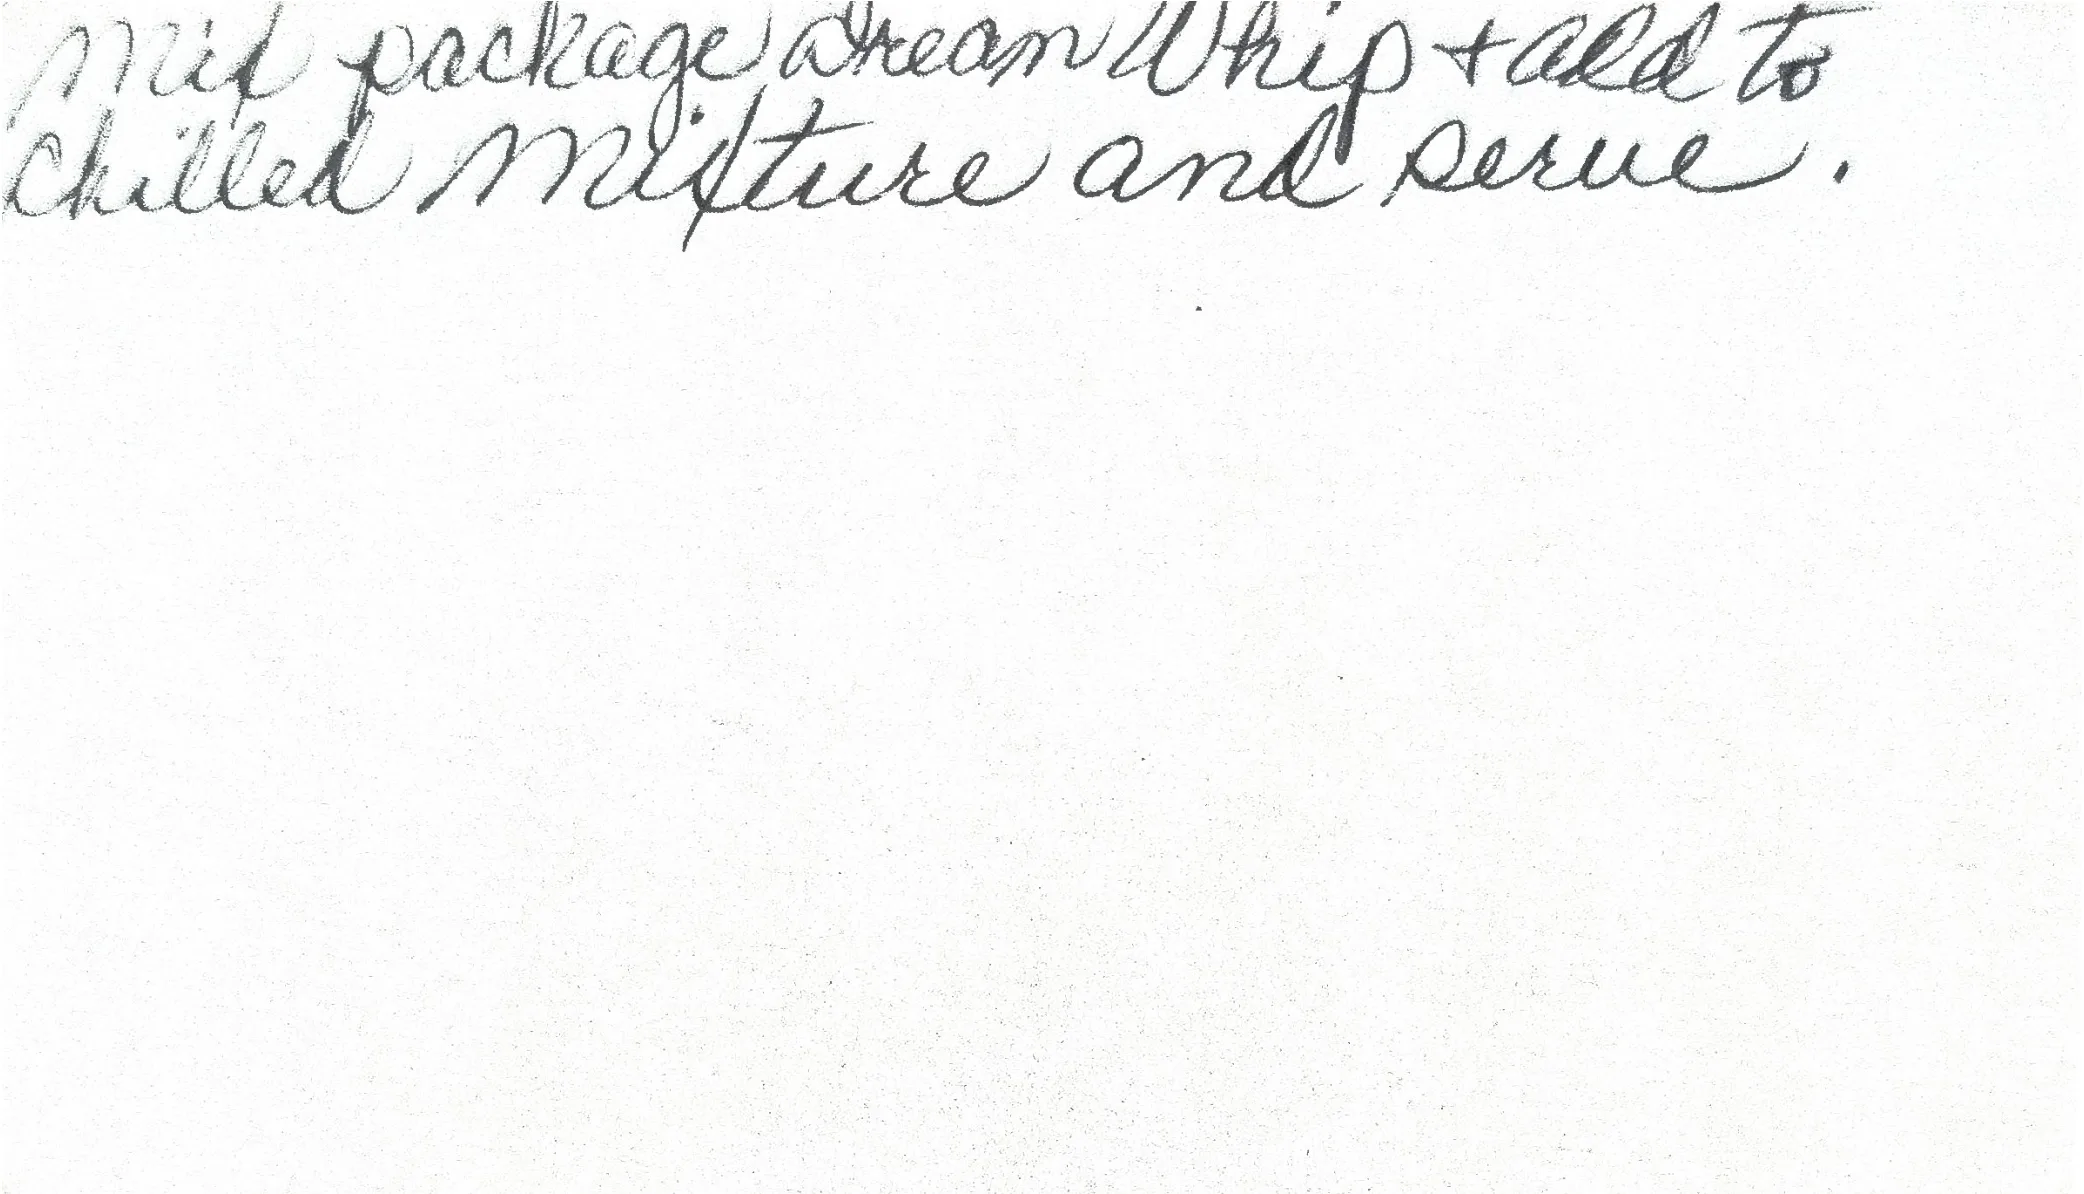 Mix package Dream Whip + add to
Chilled Mixture and serve.